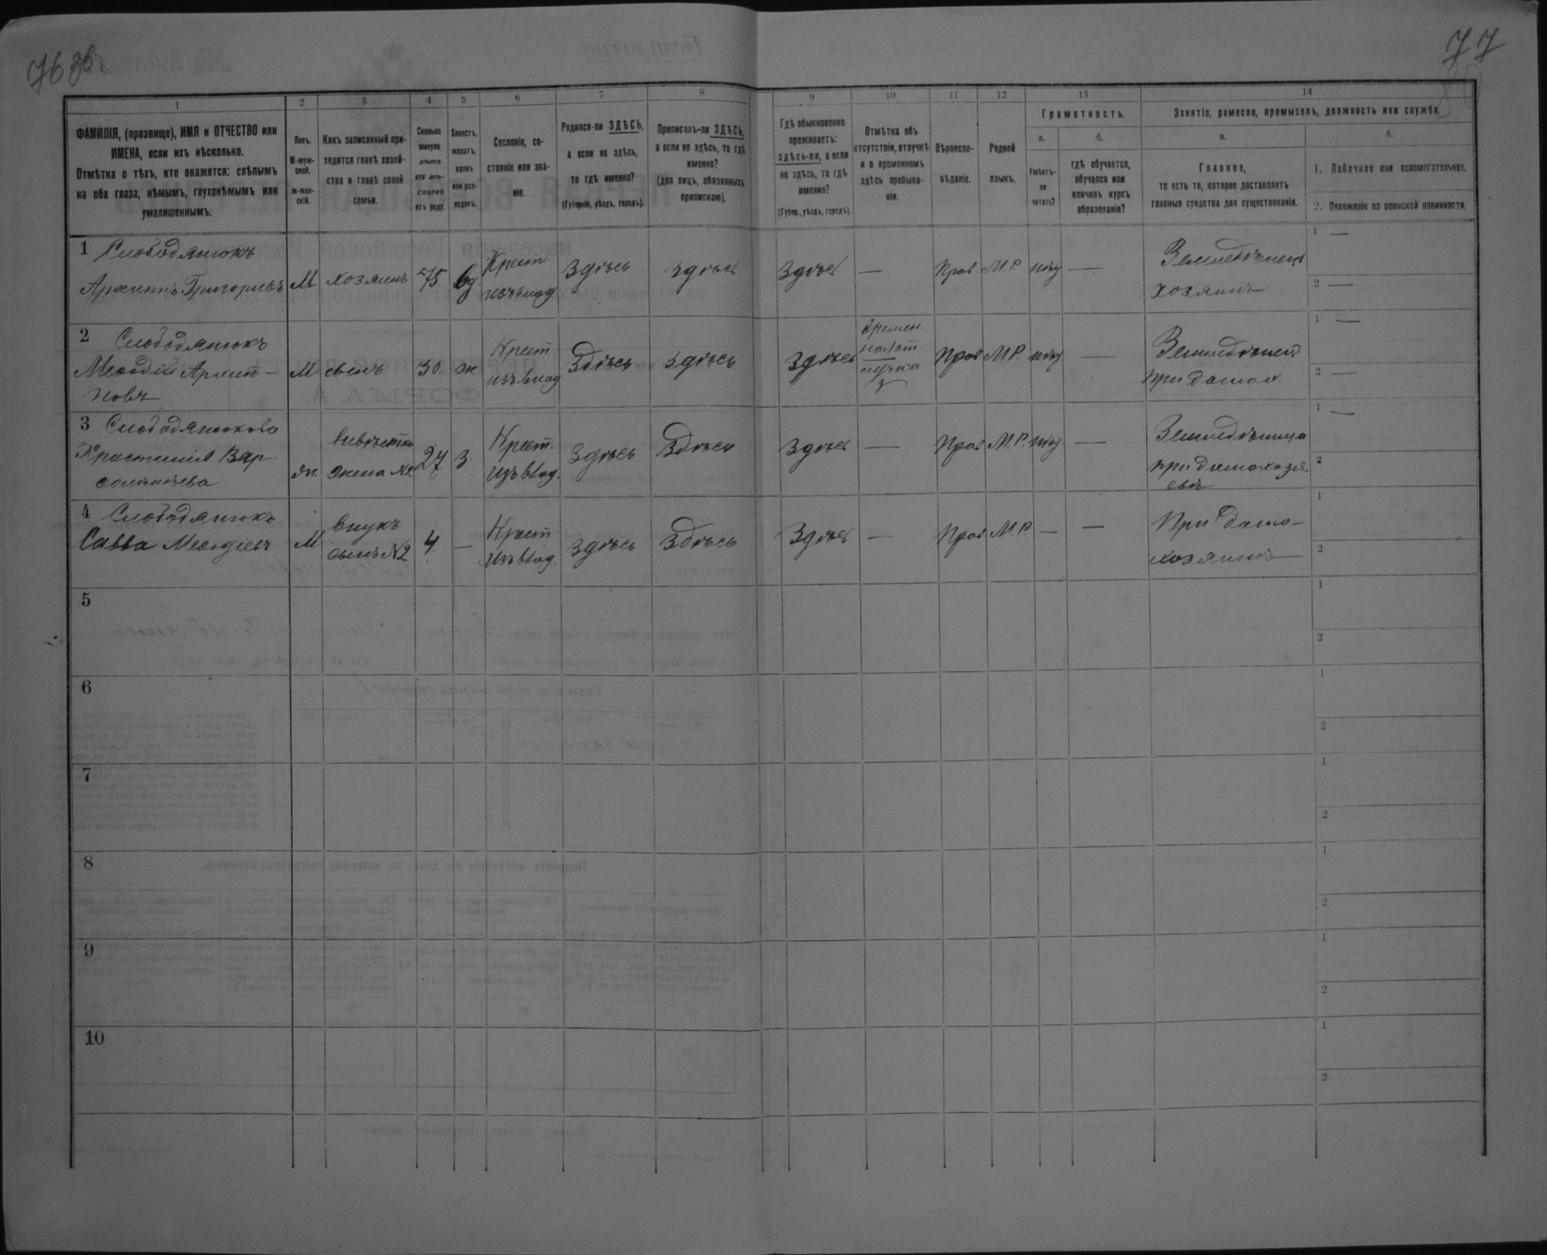 76 об
77
1
2
3
4
5
6
7
8
9
10
11
12
13
14
ФАМИЛІЯ, (прозвище), ИМЯ и ОТЧЕСТВО или
ИМЕНА, если ихъ нѣсколько.
Отмѣтка о тѣхъ, кто окажется: слѣпымъ
на оба глаза, нѣмымъ, глухонѣмымъ или
умалишеннымъ.
Полъ.
М-муж-
ской.
ж-жен-
скій.
Какъ записанный при-
ходится главѣ хозяй-
ства и главѣ своей
семьи.
Сколько
минуло
лѣтъ
или мѣ-
сяцевъ
отъ роду.
Холостъ,
женатъ,
вдовъ
или раз-
веденъ.
Сословіе, со-
стояніе или зва-
ніе.
Родился-ли ЗДѢСЬ,
а если не здѣсь,
то гдѣ именно?
(Губернія, уѣздъ, городъ).
Приписанъ-ли ЗДѢСЬ,
а если не здѣсь, то гдѣ
именно?
(для лицъ, обязанныхъ
припискою).
Гдѣ обыкновенно
проживаетъ:
здѣсь-ли, а если
не здѣсь, то гдѣ
именно?
(Губер., уѣздъ, городъ).
Отмѣтка объ
отсутствіи, отлучкѣ
и о временномъ
здѣсь пребыва-
ніи.
Вѣроиспо-
вѣданіе.
Родной
языкъ.
Грамотность.
а.
б.
Умѣетъ-
ли
читать?
гдѣ обучается,
обучался или
кончилъ курсъ
образованія?
Занятіе, ремесло, промыселъ, должность или служба.
а.
б.
Главное,
то есть то, которое доставляетъ
главныя средства для существованія.
1. Побочное или вспомогательное.
2. Положеніе по воинской повинности.
1 Слободянюкъ
Архиппъ Григорьевъ М хозяинъ 75 вд Крест изъ влад Здѣсь здѣсь здѣсь — Прав М.Р. нѣт — Земледѣлецъ
хозяинъ
1 —
2 —
2 Слободянюкъ
Меѳодій Архип-
повъ М сынъ 30 ж Крест изъ влад Здѣсь здѣсь здѣсь Прав М.Р. нѣт — Земледѣлецъ
при домох.
1 —
2 —
3 Слободянюкова
Христинія Вар-
ж. невѣстка
жена №2 27 З Крест. изъ влад. Здѣсь Здѣсь Здѣсь — Прав М.Р. нѣт — Земледѣлица
при домохозя-
евѣ
1 —
2
4 Слободянюкъ
Савва Меѳодіевъ М внукъ
сынъ №2 4 — Крест. изъ влад. здѣсь Здѣсь Здѣсь — Прав М.Р. — — При домо-
хозяинѣ
1
2
5
1
2
6
1
2
7
1
2
8
1
2
9
1
2
10
1
2